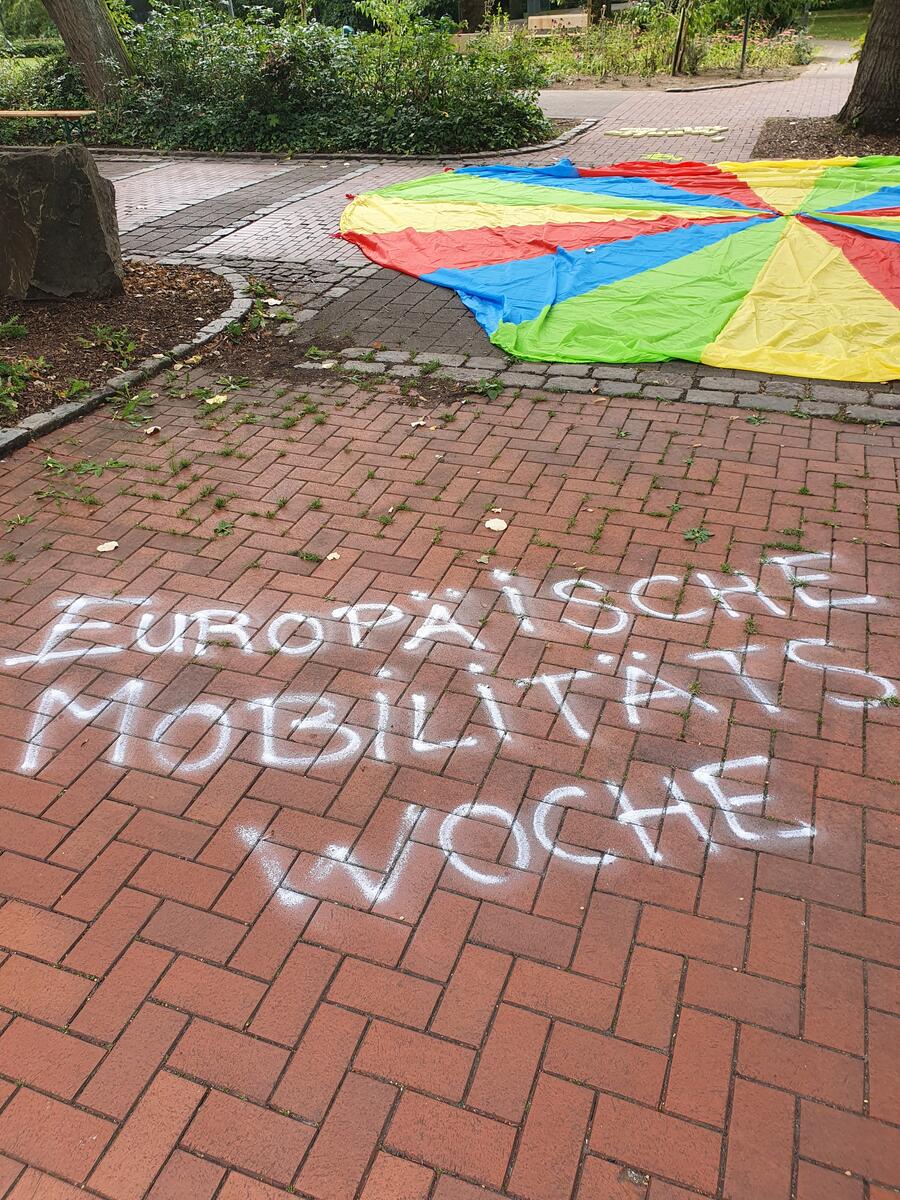 EUROPÄISCHE
MOBILITÄTS
WOCHE